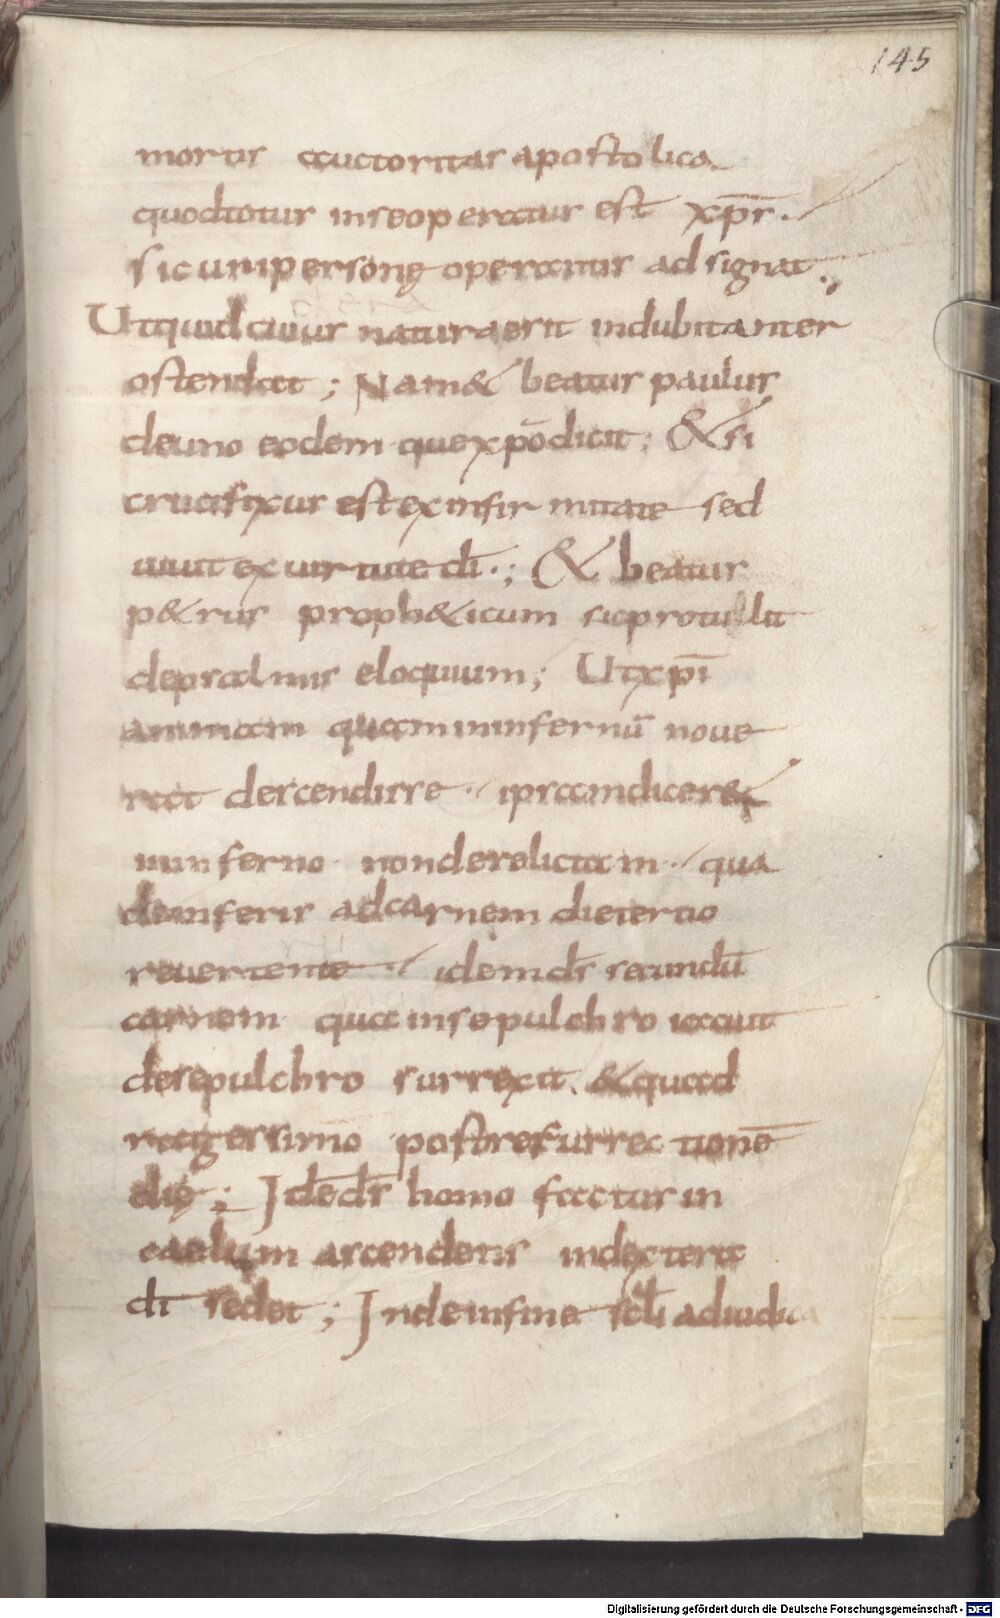 145
mortis auctoritas apostolica
quod totus in se operatus est xp̄s.
sic unipersonę operantis adsignat.,
Ut quid cuius natura erit indubitanter
ostendat ; Nam & beatus paulus
de uno eodem que xpō dicit ; & si
crucifixus est ex infirmitate sed
uiuit ex uirtute dī. ; & beatus
p&rus proph&icum sic protullit
de psalmis eloquium ; Ut xpī
animam quam in infernū noue
rat descendisse . ipsam dicer&
in inferno non derelictam . qua
de inferis ad carnem die tertio
reuertente . idem ds̄ secundū
carnem qua in sepulchro iacuit
de sepulchro surrexit. & quad
ragessimo post resurrectionē
dię ; Idē ds̄ homo factus in
caelum ascendens in dextera
dī sedet ; Inde in fine scl̄i ad iudica
Digitalisierung gefördert durch die Deutsche Forschungsgemeinschaft - DFG